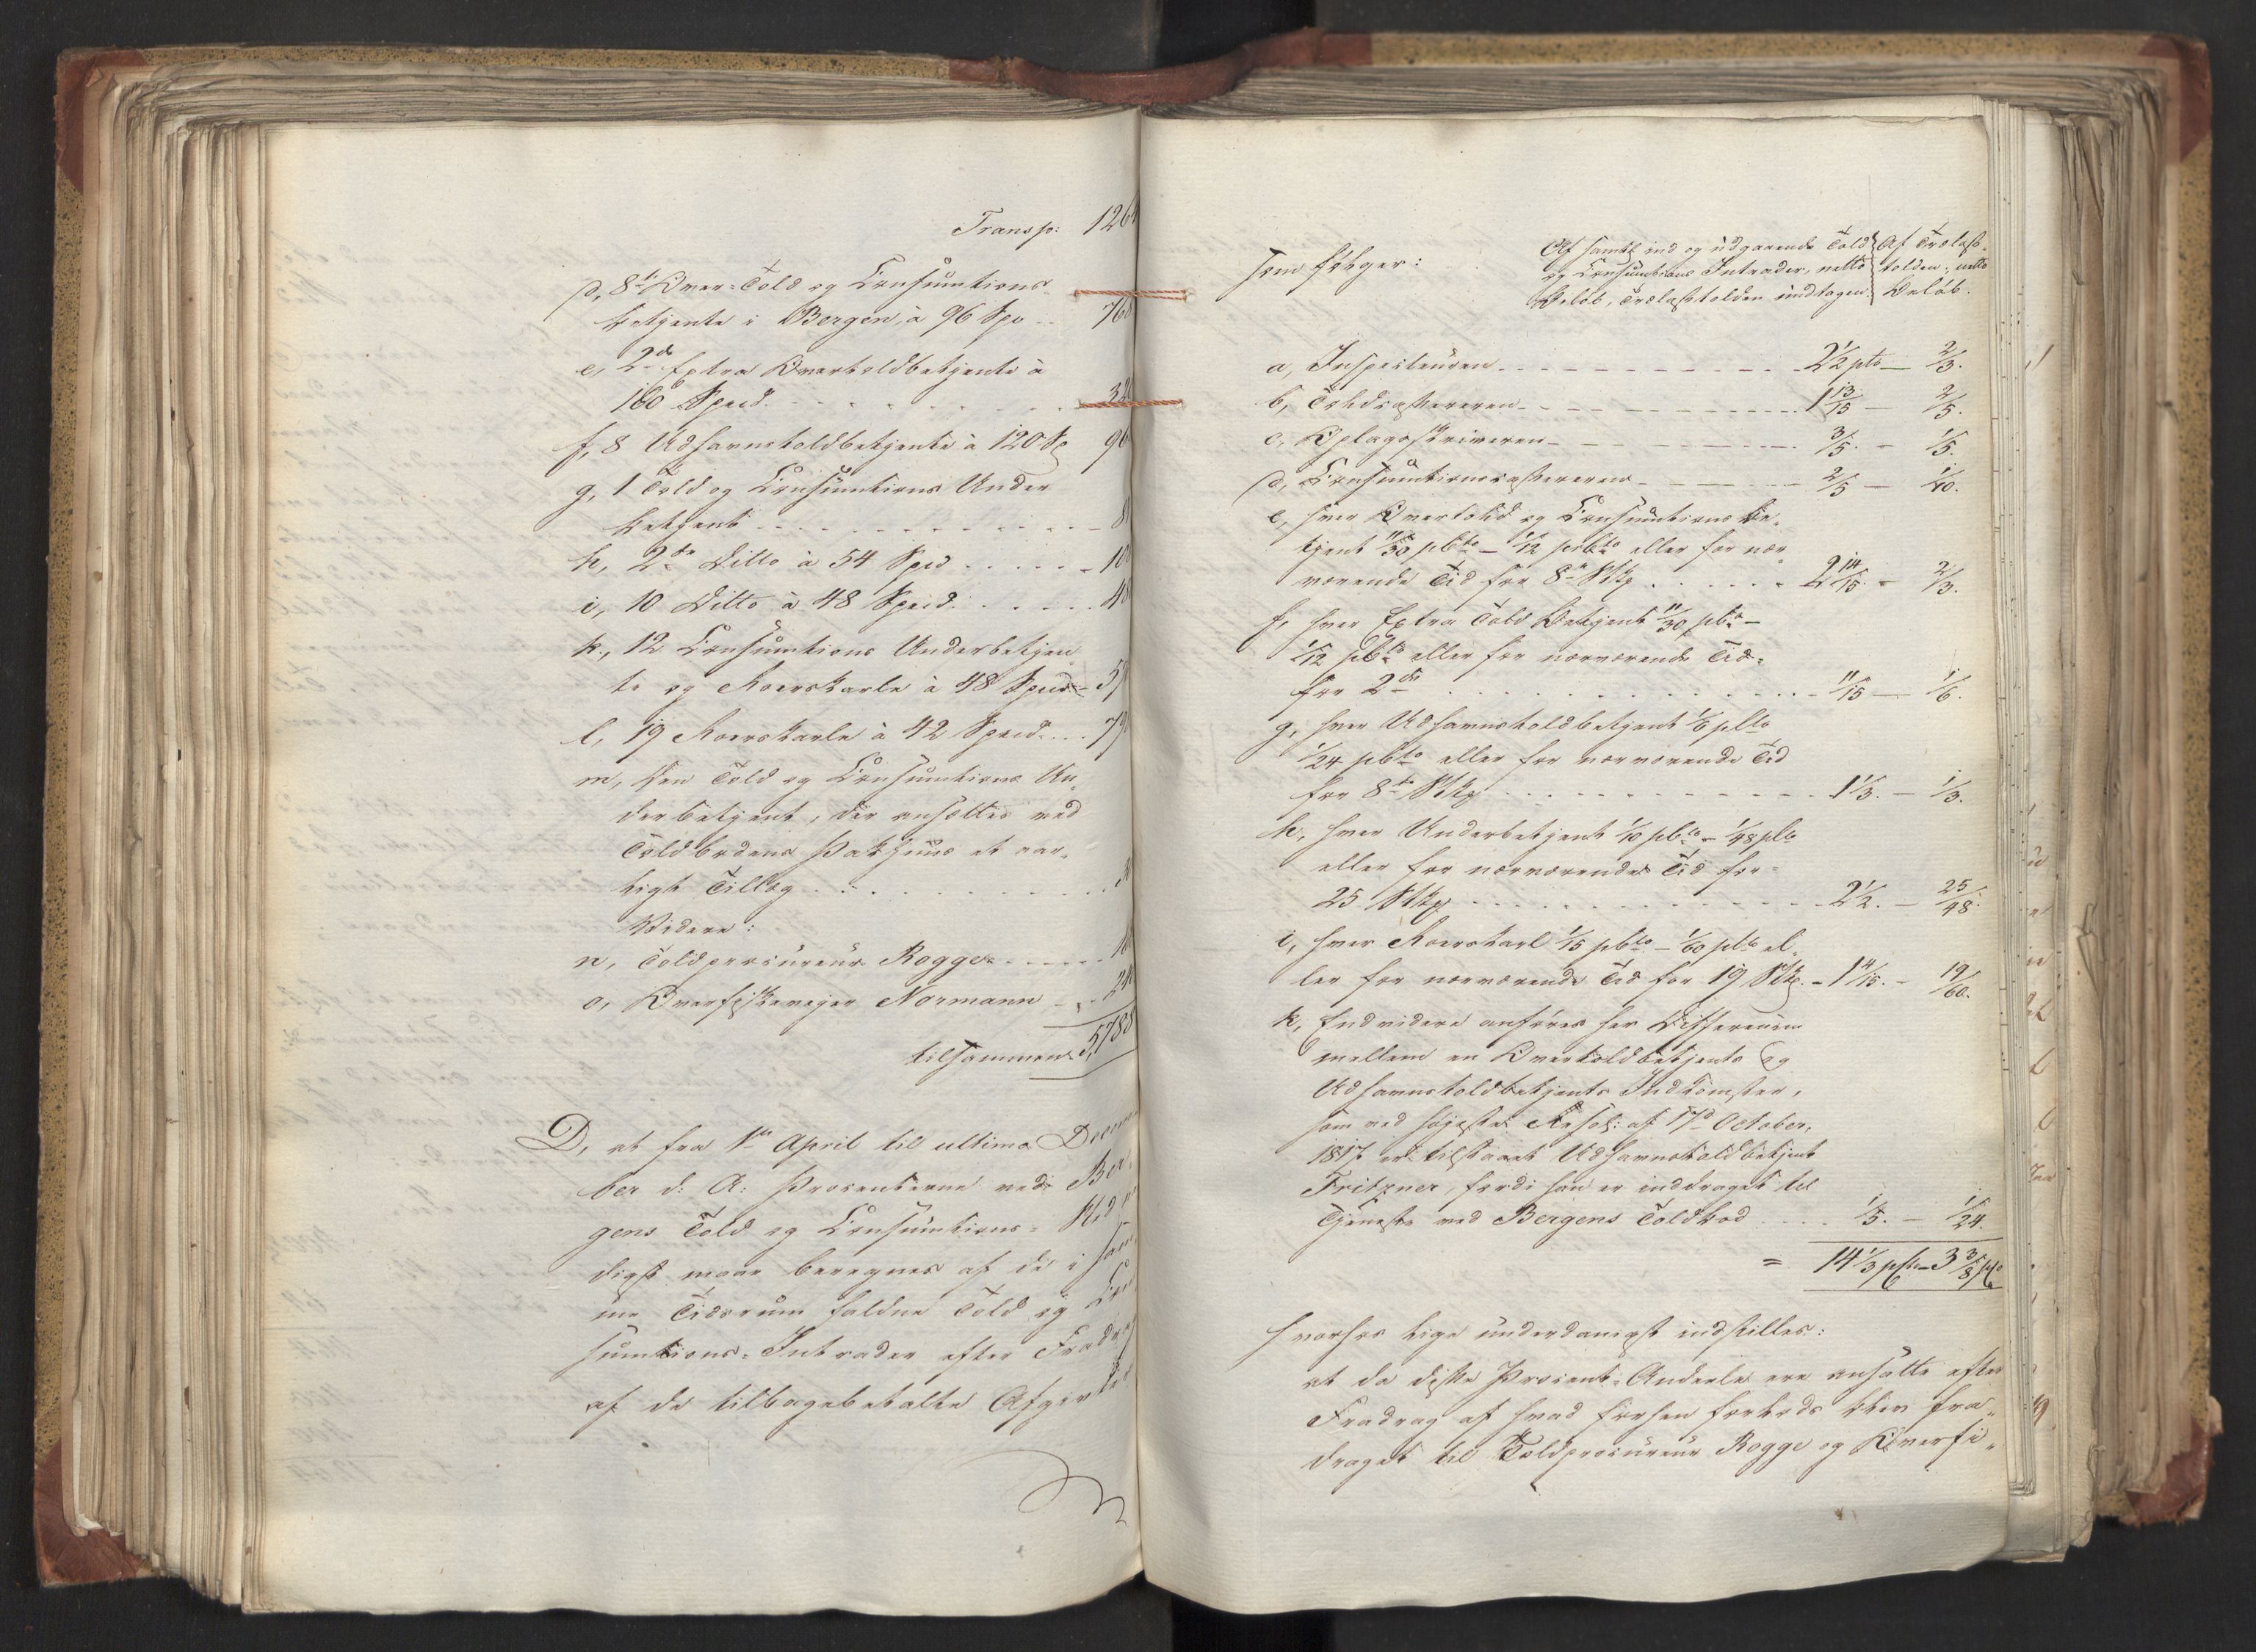 Transp: 1264
d, 8te Over-Told og Consumtions-
betjente i Bergen, à 96 Spd .. 768
e, 2de Extra Overtoldbetjente à
160 Specd. - - - 320
f, 8 Udhavnstoldbetjente à 120 Sp 960
g, 1 Told og Consumtions Under
betjent - - - 8
h, 2de Ditto à 54 Spd - - - 108
i, 10 Ditto à 48 Specd. - - - 48
k, 12 Consumtions Underbetjen
te og Roerskarle à 48 Specd - 57
l, 19 Roerskarle à 42 Specd. - - 79
m, den Told og Consumtions Un-
derbetjent, der ansættes ved
Toldbodens Pakhuus et aar-
ligt Tillæg - - -
Videre:
n, Toldprocureur Rogge - - -
o, Overfiskevejer Normann - - 24
tilsammen 5,788
D, at fra 1ste April til ultimo Decem
ber d: A: Procenterne ved Ber-
gens Told og Consumtions-
digst maae beregnes af de i sam-
me Tidsrum faldne Told og Con-
sumtions-Intrader efter Fradrag
af de tilbagebetalte Afgivter
som følger:
Af samtl ind og udgaaende Told
og Consumtions Intrader, netto
Beløb, Trælasttolden undtagen.
Af Trælast-
tolden, netto
Beløb.
a, Inspecteuren - - - 2½ pCto — 2/3.
b, Toldcassereren - - - 1 13/15 — 2/5.
c, Oplagsskriveren - - - 3/5. - 1/5.
d, Consumtionscassereren - - - 2/5 — 1/10.
e, hver Overtold og Consumtions Be-
tjent 11/30 pCto - 1/12 pCto eller for nær
værende Tid for 8te Stkr - - - 2 14/15. - 2/3.
f, hver Extra Told Betjent 11/30 pCto -
1/12 pCto eller for nærværende Tid
for 2de - - - 11/15 — 1/6.
g, hver Udhavnstoldbetjent 1/6 pCto
1/24 pCto eller for nærværende Tid
for 8te Stkr - - - 1 1/3. - 1/3.
h, hver Underbetjent 1/10 pCto - 1/48 pCto
eller for nærværende Tid for
25 Stkr - - - 2 1/2. - 25/48.
i, hver Roerskarl 1/15 pCto - 1/60 pCto el-
ler for nærværende Tid for 19 Stkr. - 1 4/15. - 19/60.
k, Endvidere anføres her Differencen
mellem en Overtoldbetjents og
Udhavnstoldbetjents Indkomster,
som ved højeste Resol: af 17de October
1817 er tilstaaet Udhavnstoldbetjent
Fritzner, fordi han er inddraget til
Tjeneste ved Bergens Toldbod - - 1/5. - 1/24.
= 14 1/3 pCto - 3 3/8 pCto
hvorhos lige underdanigst indstilles:
at da disse Procent-Andeele ere ansatte efter
Fradrag af hvad forhen forlods blev fra-
draget til Toldprocureur Rogge og Overfi-